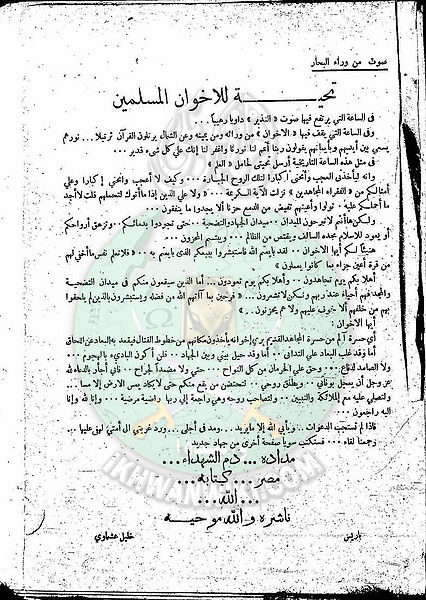 صوت من وراء البحار
تحية للاخوان المسلمين
فى الساعة التي يرتفع فيها صوت « النذير » داويا رهيباً . . .
وفى الساعة التي يقف فيها « الاخوان » من ورائه ومن يمينه وعن الشمال يرتلون القرآن ترتيلا . . نورهم
يسعى بين أيديهم وبأيمانهم يقولون ربنا أتمم لنا نورنا واغفر لنا إنك على كل شىء قدير . . .
فى مثل هذه الساعة التاريخية أرسل تحيتى لحامل « العلم »
وانه ليأخذنى العجب وأنحنى اكبارا لتلك الروح الجبارة . . . وكيف لا أعجب وانحنى إكبارا وعلى
أمثالكم من « الفقراء المجاهدين » نزلت الآية الكريمة . . . « ولا على الذين إذا ما أتوك لتحملهم قلت لا أجد
ما أحملكم عليه . تولوا وأعينهم تفيض من الدمع حزنا ألا يجدوا ما ينفقون
ولكن ها أنتم لا تبرحون للميدان . . ميدان الجهاد والتضحية . . . حتى تجودوا بدمائكم . . وتزهق أرواحكم
أو يعود للاسلام مجده السالف ويقتص من الظالم . . . ويبتسم المحزون . . .
هنيئاً لكم أيها الاخوان . . لقد بايعتم الله فاستبشروا ببيعكم الذى بايعتم به . . « فلا تعلم نفس ما أخفى لهم
من قرة أعين جزاء بما كانوا يعملون »
أهلا بكم يوم تجاهدون . . وأهلا بكم يوم تعودون . . أما الذين سيقعون منكم فى ميدان التضحية
والمجد فهم أحياء عند ربهم ولكن لا تشعرون . . « فرحين بما آتاهم الله من فضله ويستبشرون بالذين لم يلحقوا
بهم من خلفهم ألا خوف عليهم ولا هم يحزنون . . »
أيها الاخوان :
أى حسرة آلم من حسرة المجاهد القديم يرى إخوانه يأخذون مكانهم من خطوط القتال فيقعد به البعاد عن اللحاق
أما وقد غلب البعاد على التدانى . . أما وقد حيل بينى وبين الجهاد . . فلن أكون البادىء بالهجوم . . .
ولا الصامد للدفاع . . . وحق على الحرمان من كل النواح . . حتى ولا مضمداً لجراح . . . فانى أجأر بالدعاء لله
عز وجل أن يسجل بوفائى . . ويطلق روحى . . لتحتضن من يقع منكم حتى لا يكاد يمس الارض إلا مسا . .
ولتصلى عليه مع الملائكة والنبيين . . ولتصاحب روحه وهى راجعة إلى ربها راضية مرضية . . . وإنا لله وإنا
اليه راجعون .
فاذا لم تستجب الدعوات . . ويأبى الله إلا ما يريد . . ومد فى أجلى . . ورد غربتى الى أمتى ليوفى عليها . .
وجمعنا لقاء . . . فسنكتب سويا صفحة أخرى من جهاد جديد
مداده . . . دم الشهداء . . .
مصر . . . كتابه . . .
. . . الله . . .
ناشره والله موحيه
باريس
خليل عشماوي
IKHWANWIKI.COM